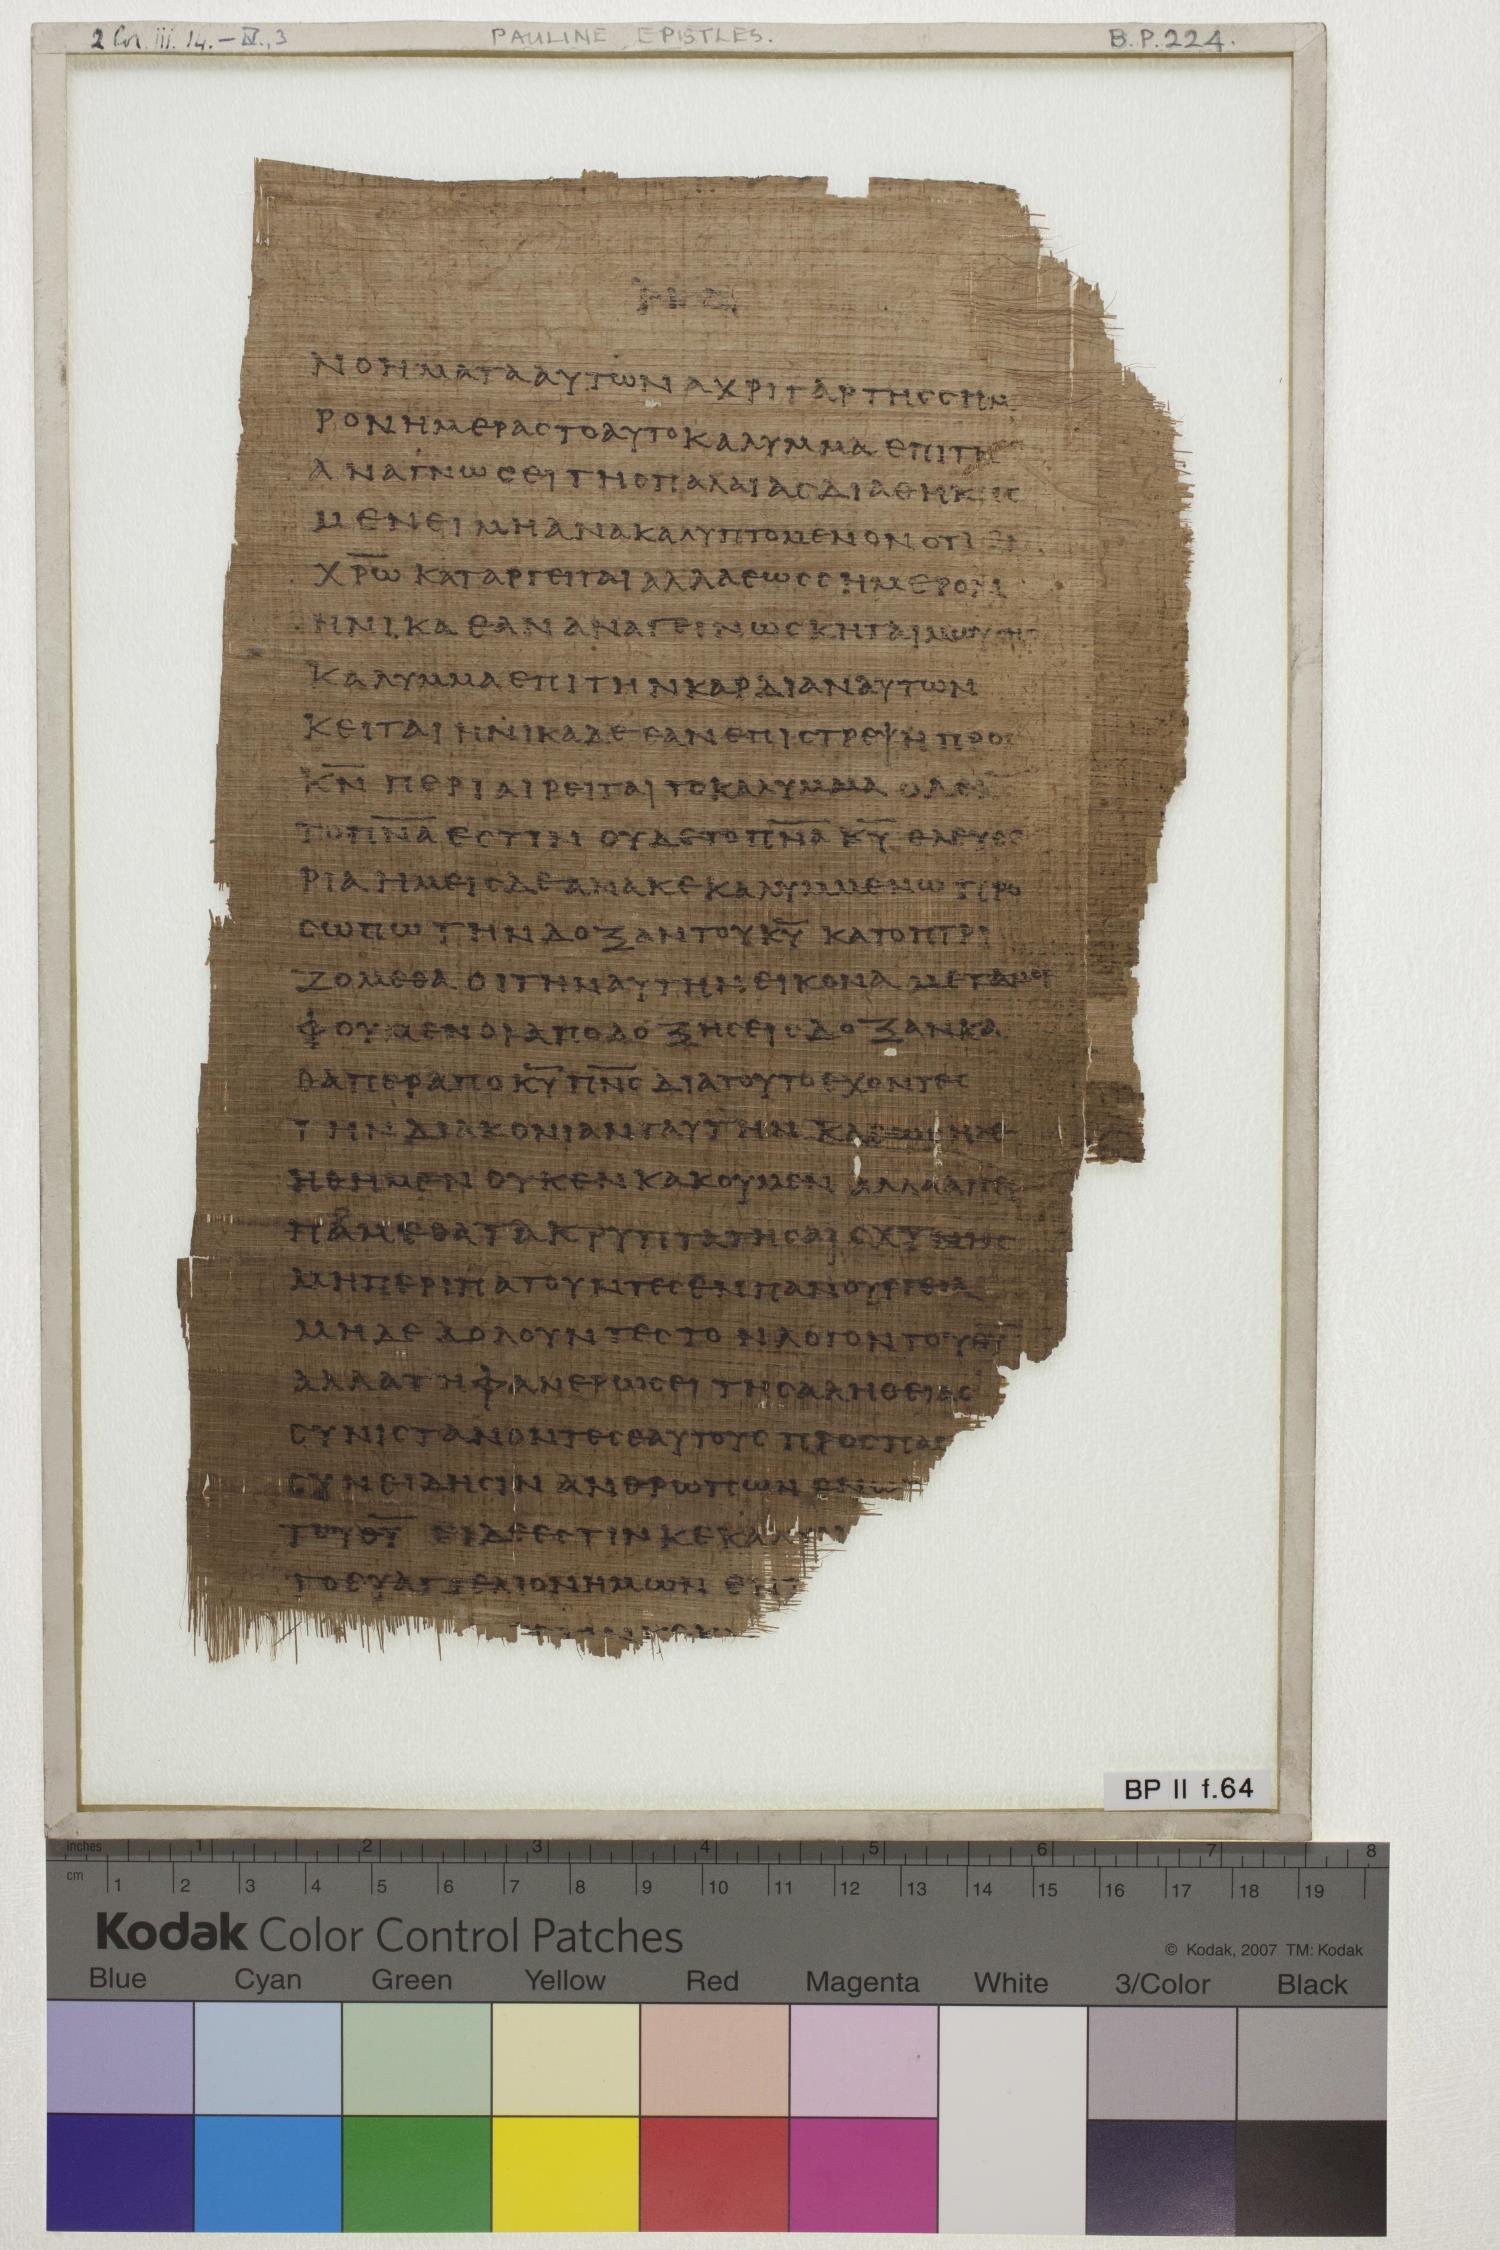 2 Cor. iii. 14. – IV., 3 PAULINE EPISTLES. B.P.224.
ΝΟΗΜΑΤΑΑΥΤΩΝ ΑΧΡΙΓΑΡΤΗϹϹΗΜ
ΡΟΝΗΜΕΡΑϹΤΟΑΥΤΟΚΑΛΥΜΜΑ ΕΠΙΤΗ
ΑΝΑΓΝΩϹΕΙΤΗϹΠΑΛΑΙΑϹΔΙΑΘΗΚΗϹ
ΜΕΝΕΙΜΗΑΝΑΚΑΛΥΠΤΟΜΕΝΟΝΟΤΙ
Χ̅Ρ̅Ω̅ ΚΑΤΑΡΓΕΙΤΑΙ ΑΛΛΑΕΩϹϹΗΜΕΡΟΝ
ΗΝΙΚΑ ΕΑΝ ΑΝΑΓΕΙΝΩϹΚΗΤΑΙΜΩΥϹΗϹ
ΚΑΛΥΜΜΑΕΠΙΤΗΝΚΑΡΔΙΑΝΑΥΤΩΝ
ΚΕΙΤΑΙ ΗΝΙΚΑΔΕ ΕΑΝΕΠΙϹΤΡΕΨΗΠΡΟϹ
Κ̅Ν̅ ΠΕΡΙΑΙΡΕΙΤΑΙ ΤΟΚΑΛΥΜΜΑ ΟΔΕΚ̅Ϲ̅
ΤΟΠ̅Ν̅Α̅ ΕϹΤΙΝ ΟΥΔΕΤΟΠ̅Ν̅Α̅ Κ̅Υ̅ ΕΛΕΥΘΕ
ΡΙΑ ΗΜΕΙϹΔΕΑΝΑΚΕΚΑΛΥΜΜΕΝΩ ΠΡΟ
ϹΩΠΩ ΤΗΝΔΟΞΑΝΤΟΥΚ̅Υ̅ ΚΑΤΟΠΤΡΙ
ΖΟΜΕΘΑ ΟΙΤΗΝΑΥΤΗΝ ΕΙΚΟΝΑ ΜΕΤΑΜΟΡ
ΦΟΥΜΕΝΟΙΑΠΟΔΟΞΗϹΕΙϹΔΟΞΑΝΚΑ
ΘΑΠΕΡΑΠΟΚ̅Υ̅Π̅Ν̅Ϲ̅ ΔΙΑΤΟΥΤΟΕΧΟΝΤΕϹ
ΤΗΝΔΙΑΚΟΝΙΑΝΤΑΥΤΗΝ ΚΑΘΩϹΗΛΕ
ΗΘΗΜΕΝ ΟΥΚΕΝΚΑΚΟΥΜΕΝ ΑΛΛΑΑΠΕΙ
ΠΑΜΕΘΑΤΑΚΡΥΠΤΑΤΗϹΑΙϹΧΥΝΗϹ
ΜΗΠΕΡΙΠΑΤΟΥΝΤΕϹΕΝΠΑΝΟΥΡΓΕΙΑ
ΜΗΔΕ ΔΟΛΟΥΝΤΕϹΤΟΝΛΟΓΟΝΤΟΥΘ̅Υ̅
ΑΛΛΑΤΗΦΑΝΕΡΩϹΕΙ ΤΗϹΑΛΗΘΕΙΑϹ
ϹΥΝΙϹΤΑΝΟΝΤΕϹΕΑΥΤΟΥϹ ΠΡΟϹΠΑϹ
ϹΥΝΕΙΔΗϹΙΝ ΑΝΘΡΩΠΩΝ ΕΝΩΠ
ΤΟΥΘ̅Υ̅ ΕΙΔΕΕϹΤΙΝΚΕΚΑΛΥΜ
ΤΟΕΥΑΓΓΕΛΙΟΝΗΜΩΝ ΕΝΤ
BP II f.64
inches 1 2 3 4 5 6 7 8
cm 1 2 3 4 5 6 7 8 9 10 11 12 13 14 15 16 17 18 19
Kodak Color Control Patches
© Kodak, 2007 TM: Kodak
Blue Cyan Green Yellow Red Magenta White 3/Color Black